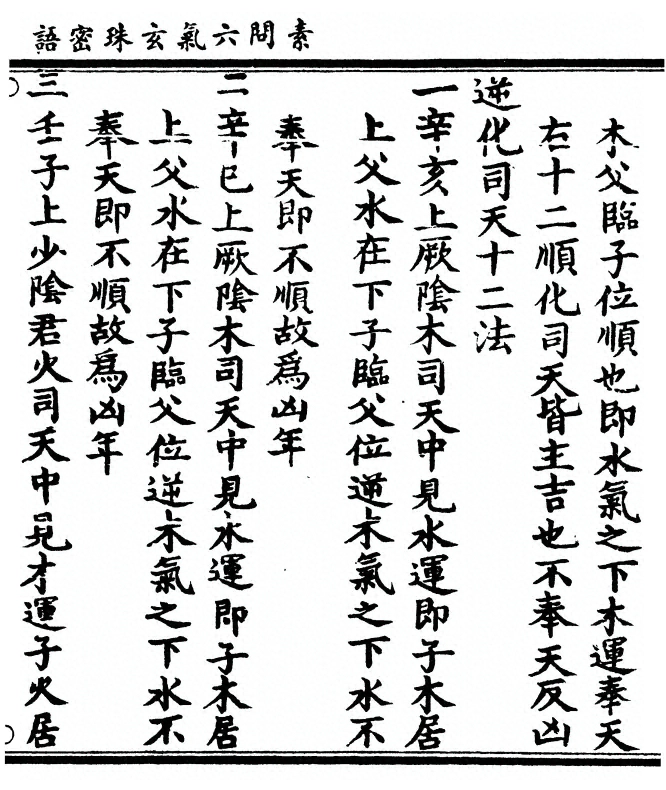 素問六氣玄珠密語
木父臨子位順也即水氣之下木運奉天
右十二順化司天皆主吉也不奉天反凶
逆化司天十二法
一辛亥上厥陰木司天中見水運即子木居
上父水在下子臨父位逆木氣之下水不
奉天即不順故爲凶年
二辛巳上厥陰木司天中見水運即子木居
上父水在下子臨父位逆木氣之下水不
奉天即不順故爲凶年
三壬子上少陰君火司天中見木運子火居